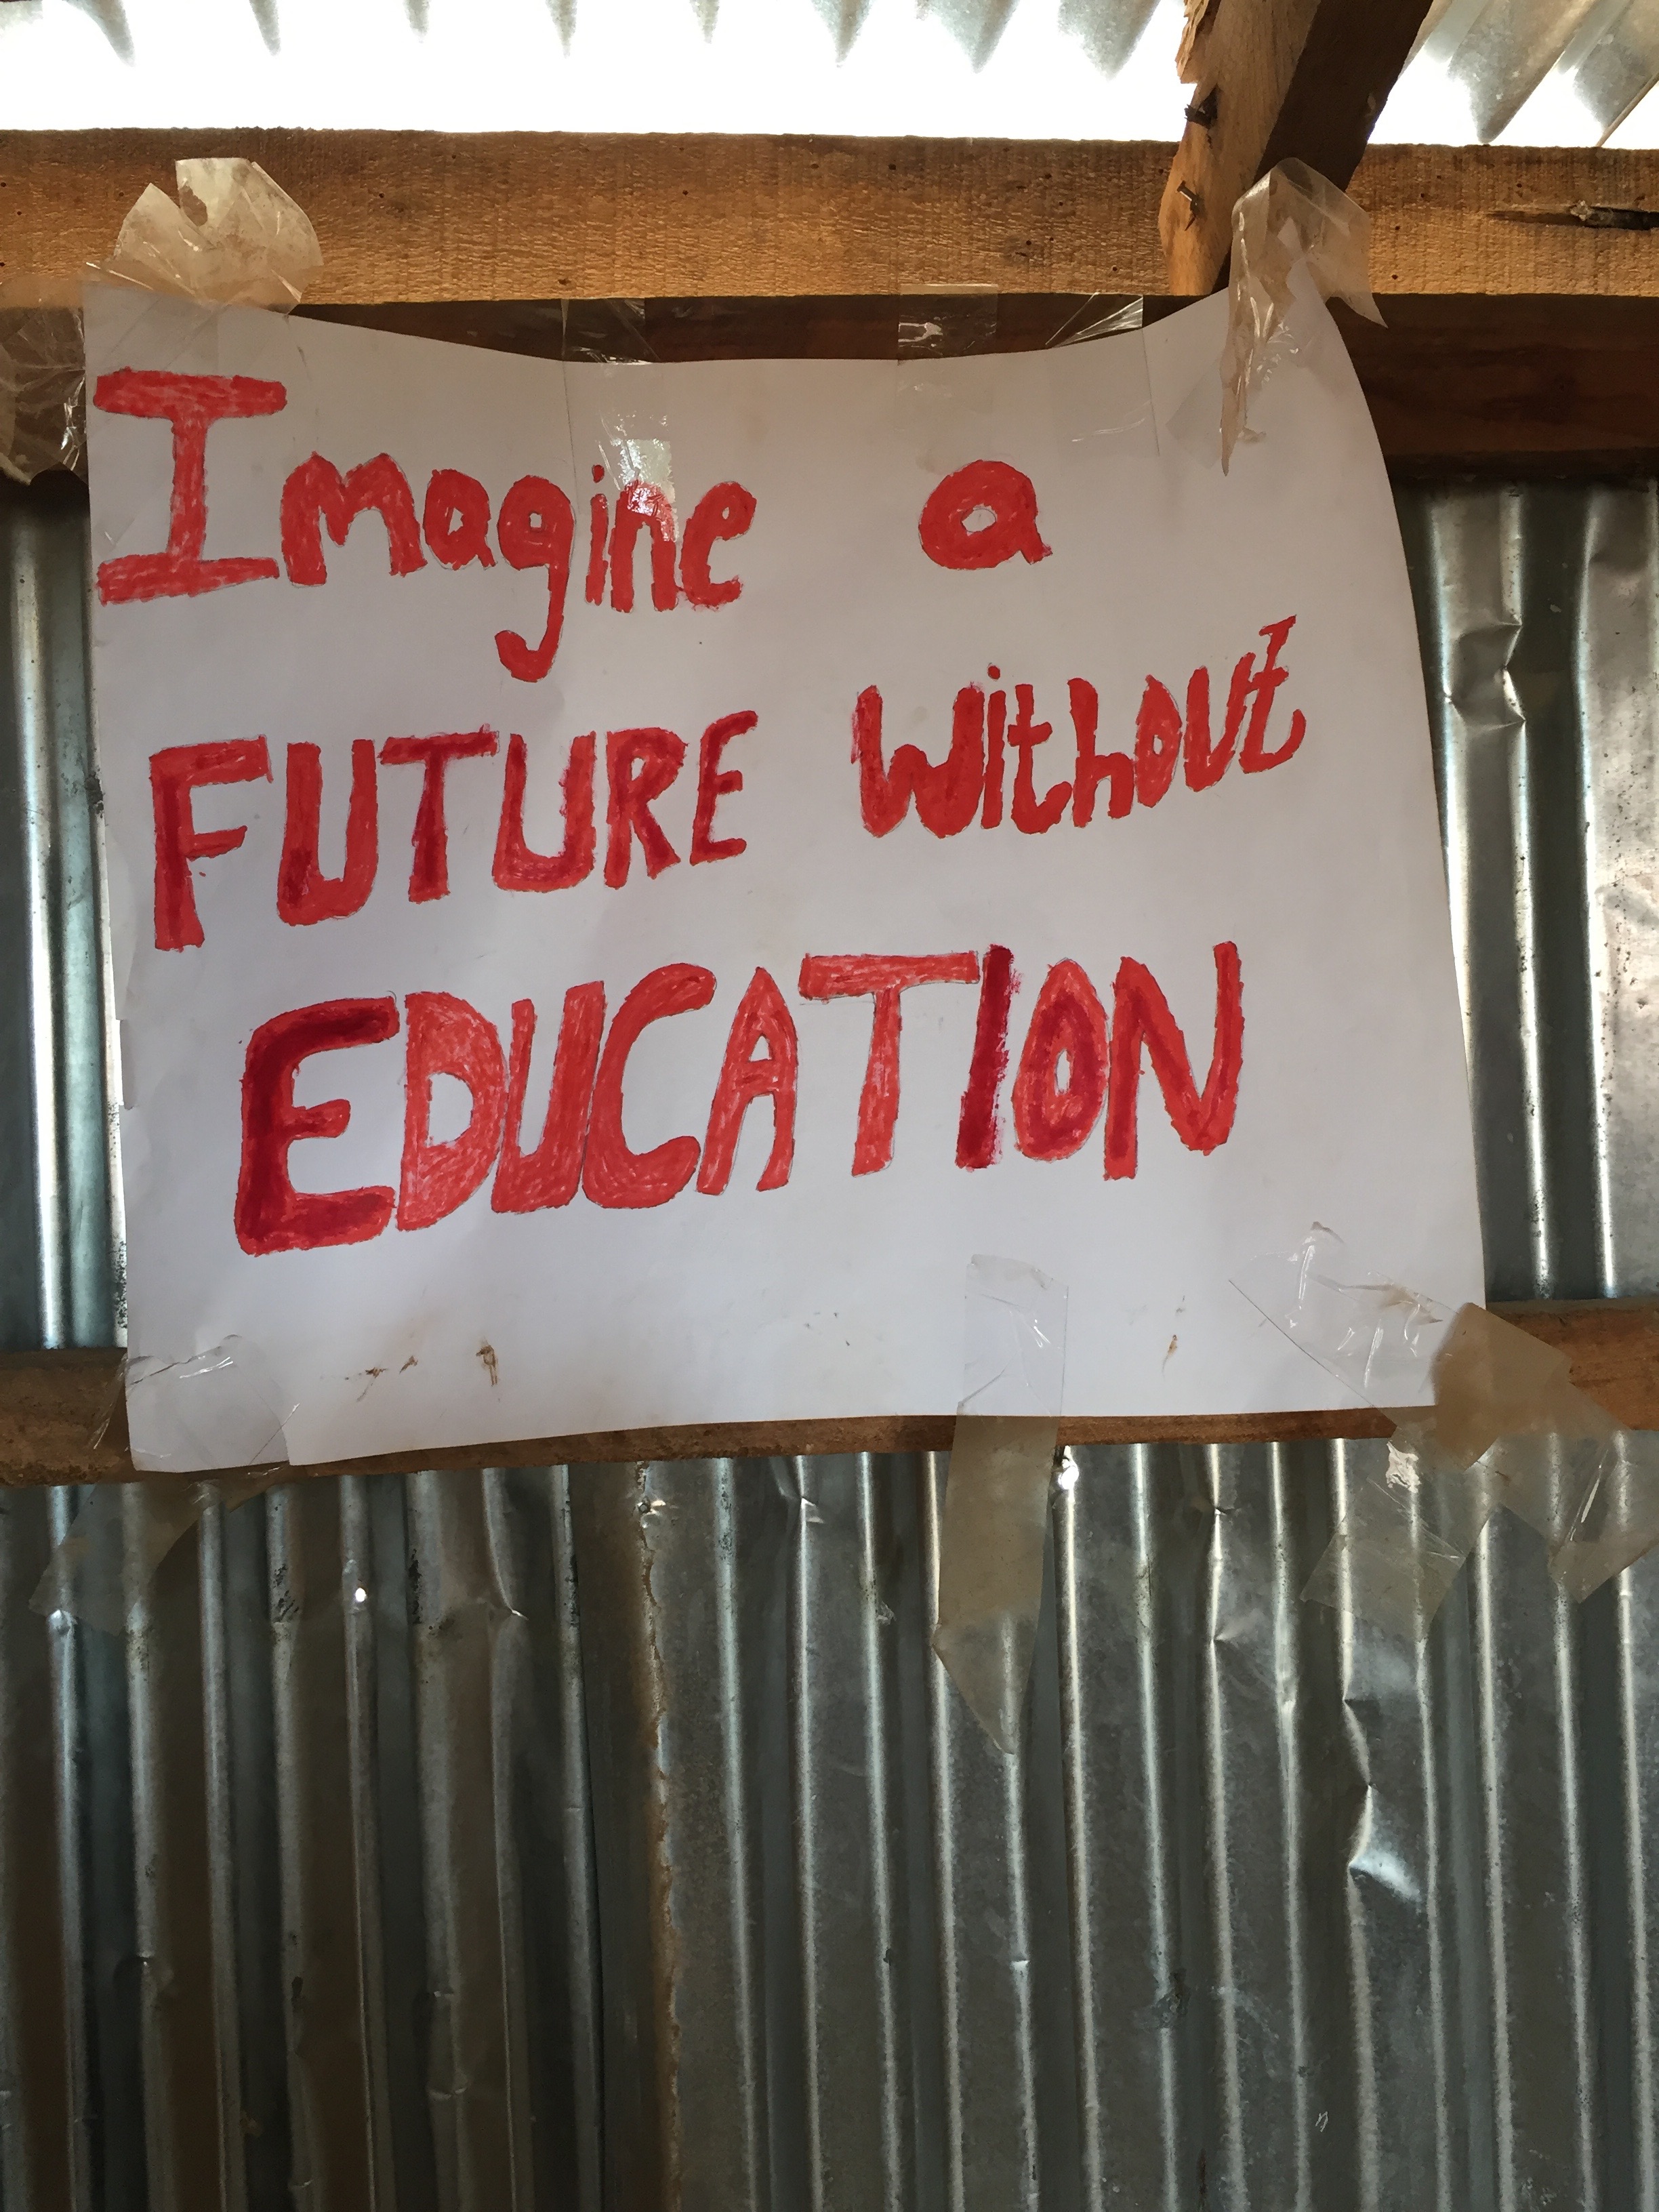 Imagine a
FUTURE without
EDUCATION